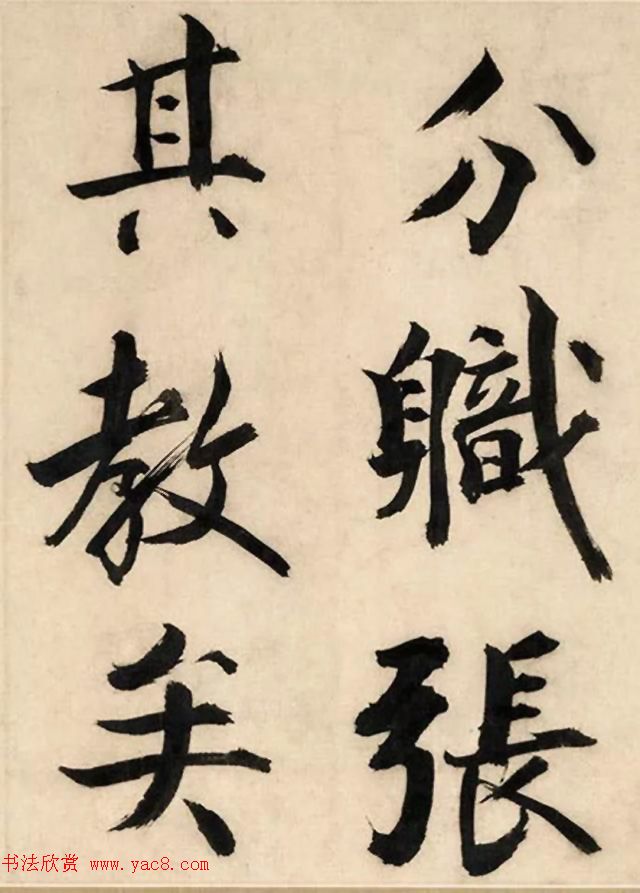 分軄張
其教矣
书法欣赏 www.yac8.com